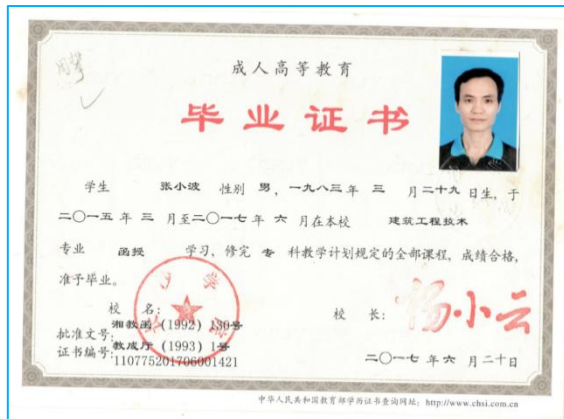 成人高等教育
毕业证书
学生 张小波 性别 男，一九八三年 三 月二十九 日生，于
二〇一五 年 三 月至二〇一七 年 六 月在本校 建筑工程技术
专业 函授 学习，修完 专 科教学计划规定的全部课程，成绩合格，
准予毕业。
校 名：
校 长：杨小云
批准文号：湘教函（1992）130号
教成厅（1993）1号
证书编号：110775201706001421
二〇一七 年 六 月 二十日
中华人民共和国教育部学历证书查询网址：http://www.chsi.com.cn